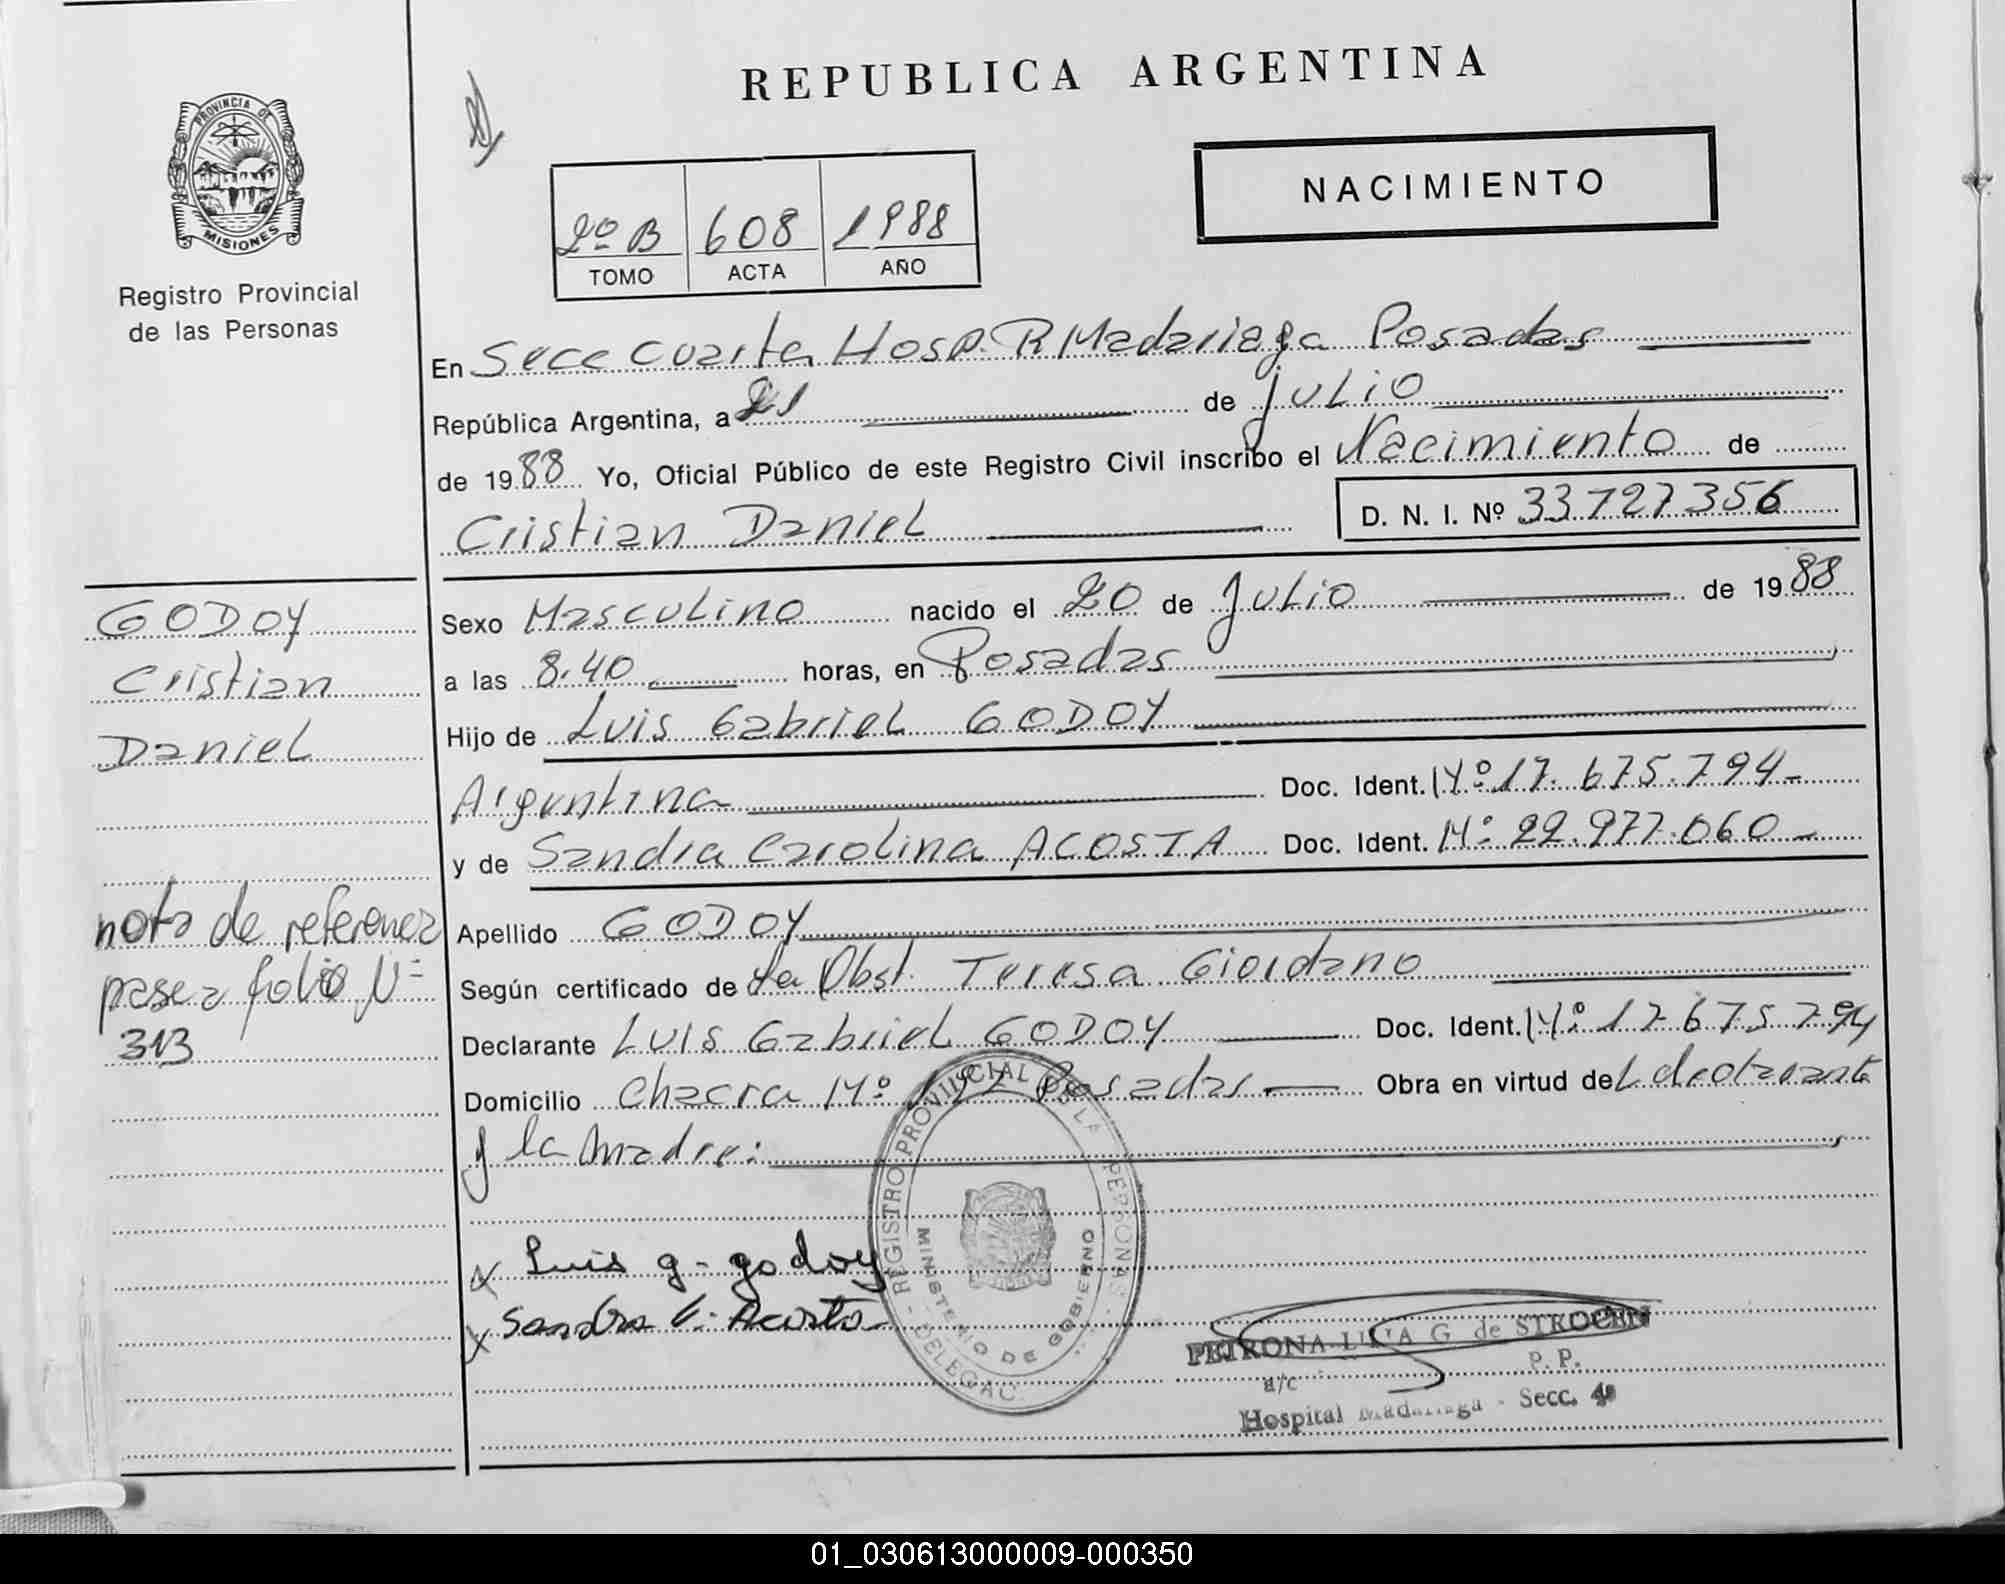 REPUBLICA ARGENTINA
PROVINCIA DE
MISIONES
Registro Provincial
de las Personas
NACIMIENTO
2º B 608 1988
TOMO ACTA AÑO
En Secc Cuarta Hosp. R Madariaga Posadas
República Argentina, a 21 de julio
de 1988 Yo, Oficial Público de este Registro Civil inscribo el Nacimiento de
Cristian Daniel D. N. I. Nº 33.727.356
GODOY
Cristian
Daniel
nota de referencia
pase a folio Nº
313
Sexo Masculino nacido el 20 de Julio de 1988
a las 8.40 horas, en Posadas
Hijo de Luis Gabriel GODOY
Argentina Doc. Ident. Nº 17.675.794-
y de Sandra Carolina ACOSTA Doc. Ident. Nº 22.977.060-
Apellido GODOY
Según certificado de La Obst. Teresa Giordano
Declarante LUIS Gabriel GODOY Doc. Ident. Nº 17675794
Domicilio Chacra Nº Posadas Obra en virtud del declarante
y la madre:
REGISTRO PROVINCIAL DE LA PERSONAS - DELEGAC
MINISTERIO DE GOBIERNO
x Luis g. godoy
x Sandra C. Acosta
PETRONA G. de
P. P.
a/c
Hospital Madariaga - Secc. 4ª
01_030613000009-000350